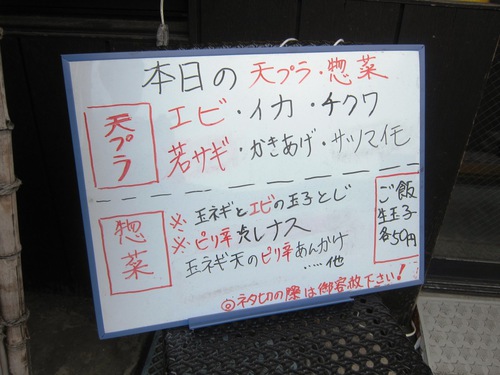 本日の 天プラ・惣菜
天プラ
エビ・イカ・チクワ
若サギ・かきあげ・サツマイモ
惣菜
※玉ネギとエビの玉子とじ
※ピリ辛蒸しナス
玉ネギ天のピリ辛あんかけ
……他
ご飯
生玉子
各50円
◎ネタ切の際は御容赦下さい!